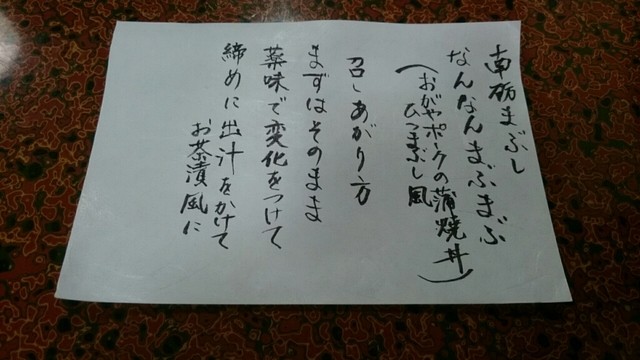 南砺まぶし
なんなんまぶまぶ
（おがやポークの蒲焼丼
ひつまぶし風）
召しあがり方
まずはそのまま
薬味で変化をつけて
締めに出汁をかけて
お茶漬風に